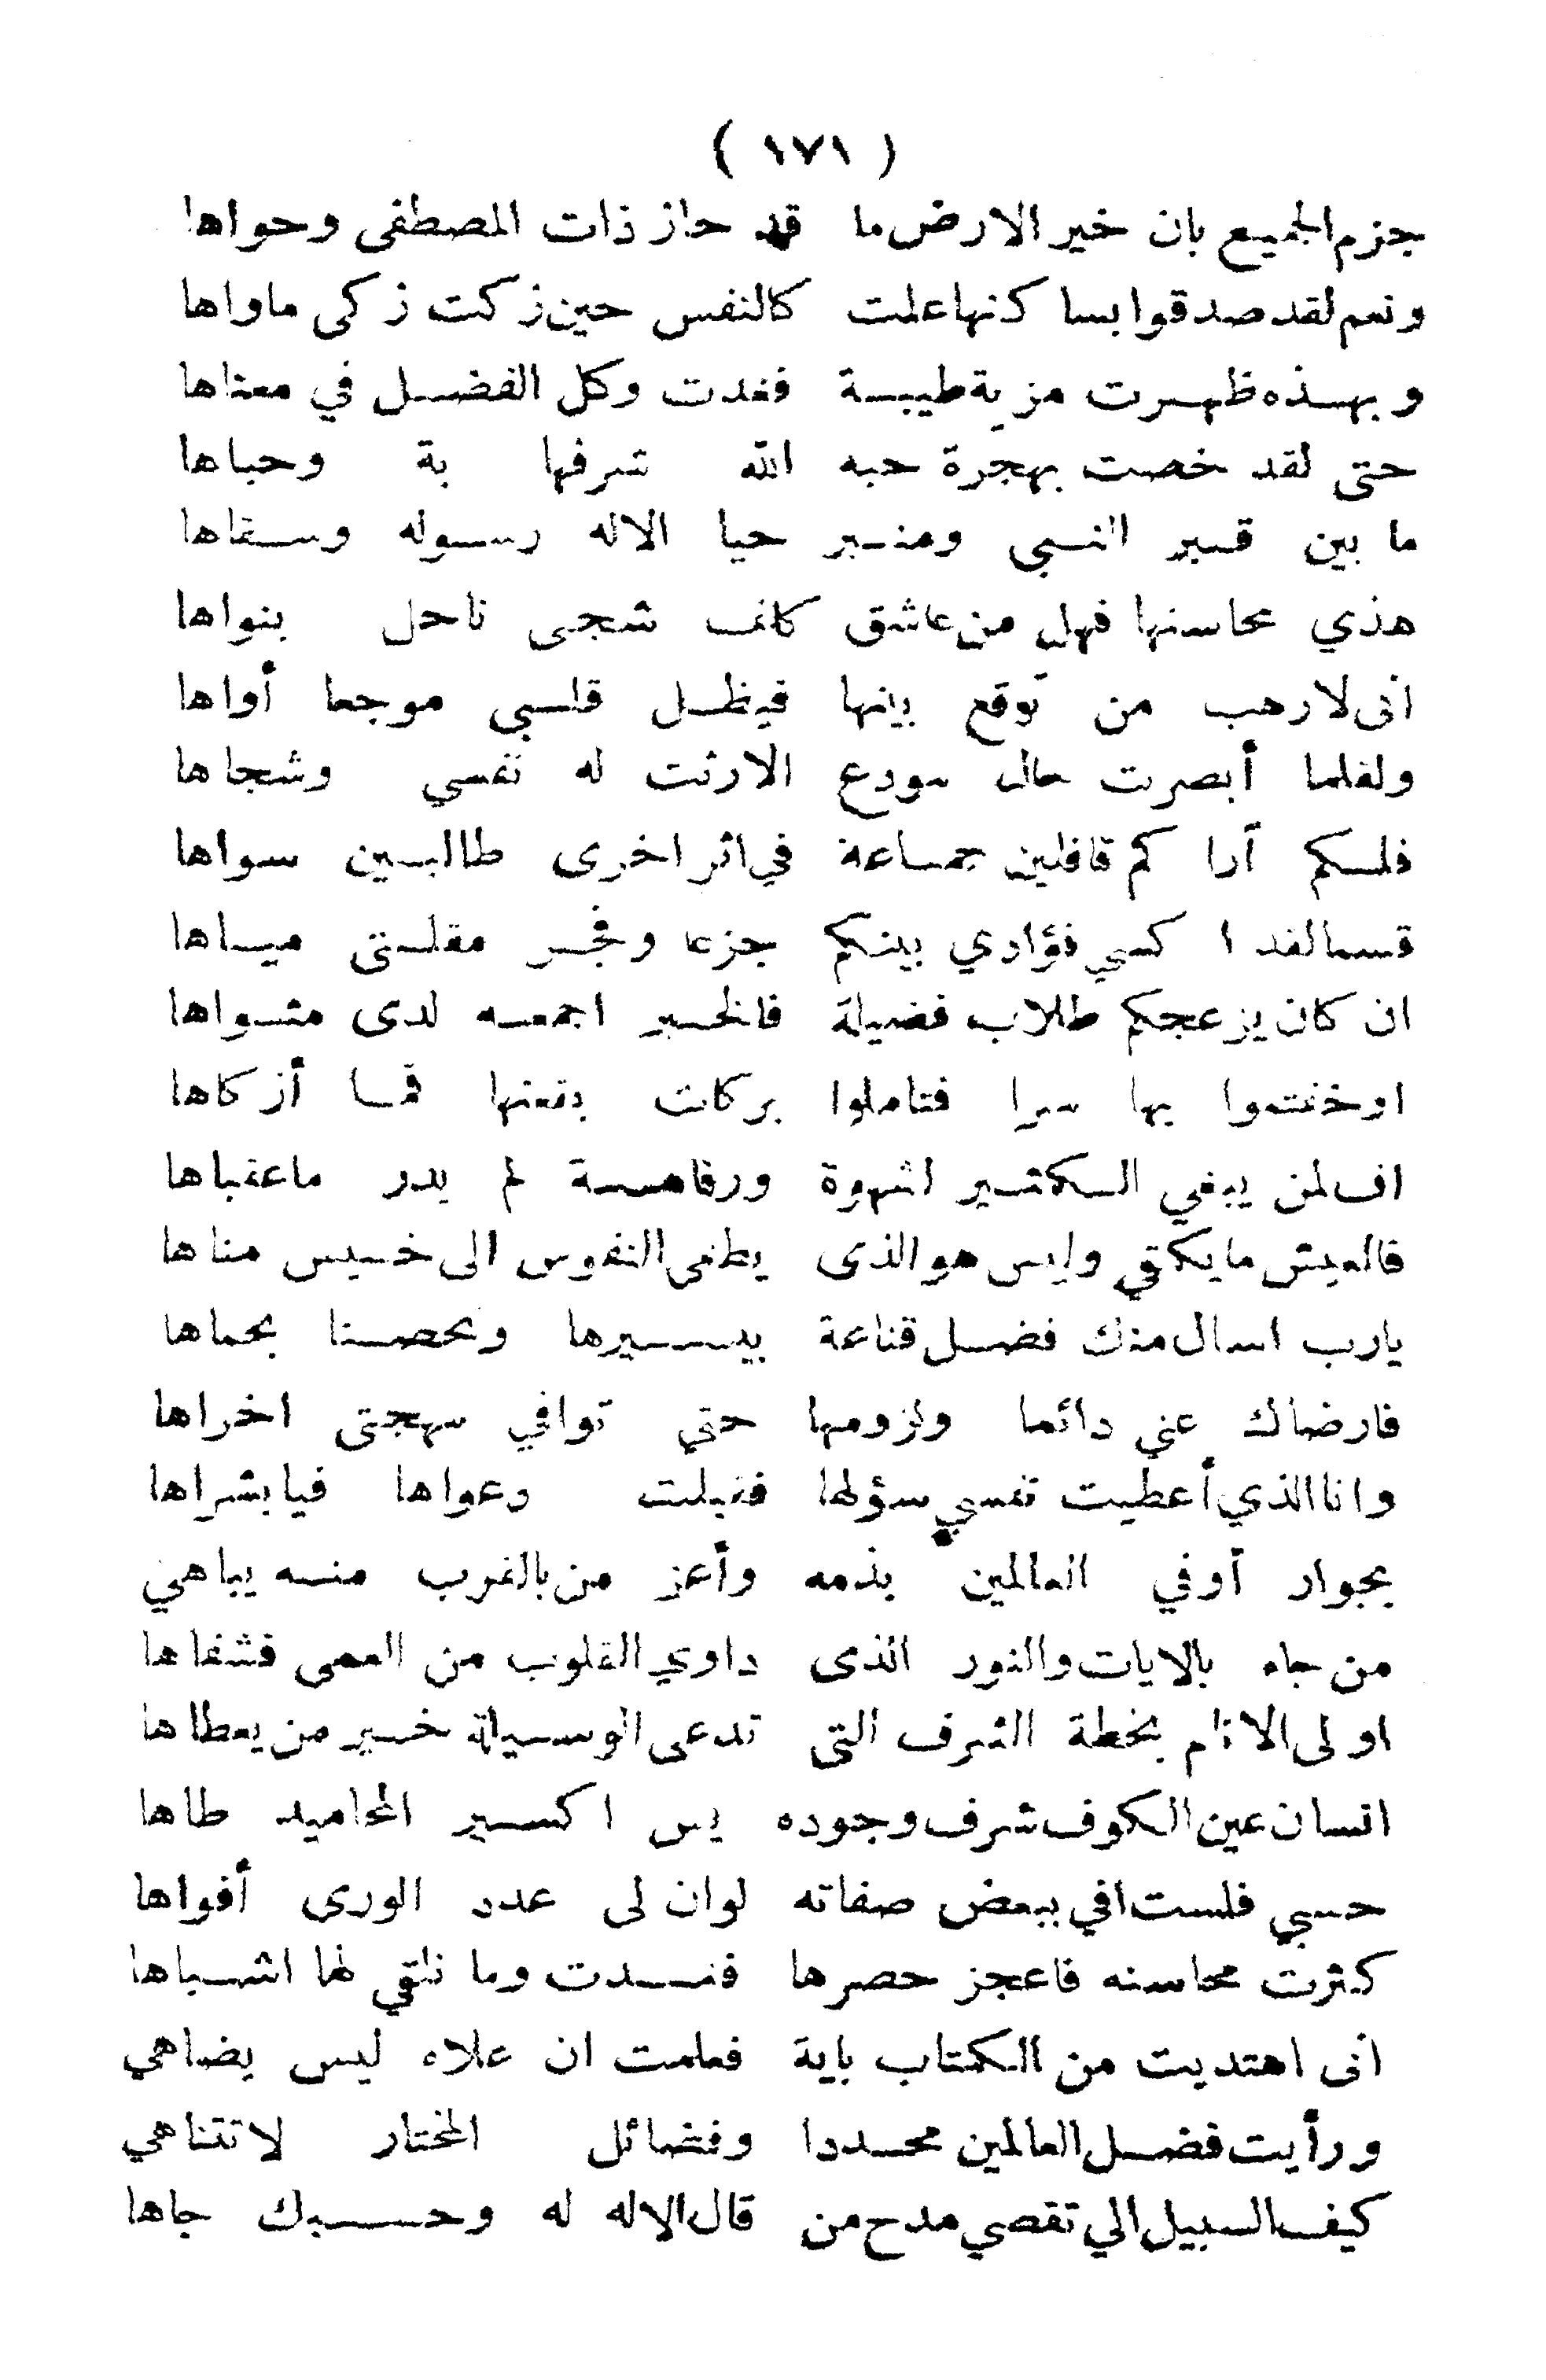 ( ١٧١ )
جزم الجميع بان خير الارض ما قد حاز ذات المصطفى وحواها
ونعم لقد صدقوا بسا كنها علمت كالنفس حين زكت زكى ماواها
وبهذه ظهرت مزية طيبة فغدت وكل الفضل في معناها
حتى لقد خصت بهجرة حبه الله شرفها بة وحباها
ما بين قبر النبي ومنبر حيا الاله رسوله وسقاها
هذي محاسنها فهل من عاشق كلف شجى ناحل بنواها
انى لارهب من توقع بينها فيظل قلبي موجعا أواها
ولقلما أبصرت حال مودع الارثت له نفسي وشجاها
فلكم أرا كم قافلين جماعة في اثر اخرى طالبين سواها
قسما لقد ا كسي فؤادي بينكم جزعا وفجر مقلتى مياها
ان كان يزعجكم طلاب فضيلة فالخير اجمعه لدى مثواها
او خفتموا بها سرا فتاملوا بركات بقعتها فما أزكاها
اف لمن يبغي الكثير لشهوة ورفاهة لم يدر ماعقباها
فالعيش ما يكفي وليس هو الذى يطغى النفوس الى خسيس مناها
يارب اسال منك فضل قناعة بيسيرها وتحصنا بحماها
فارضاك عني دائما ولزومها حتي توافي مهجتى اخراها
وانا الذي أعطيت نفسي سؤلها فقبلت دعواها فيا بشراها
بجوار أوفي العالمين بذمه وأعز من بالقرب منه يباهي
من جاء بالايات والنور الذى داوي القلوب من العمى فشفاها
اولى الانام بخطة الشرف التى تدعى الوسيلة خير من يعطاها
انسان عين الكون شرف وجوده يس اكسير المحاميد طاها
حسبي فلست افي ببعض صفاته لوان لى عدد الورى أفواها
كثرت محاسنه فاعجز حصرها فغدت وما نلقي لها اشباها
انى اهتديت من الكتاب باية فعلمت ان علاه ليس يضاهي
ورأيت فضل العالمين محددا وفضائل المختار لا تتناهي
كيف السبيل الي تقصي مدح من قال الاله له وحسبك جاها